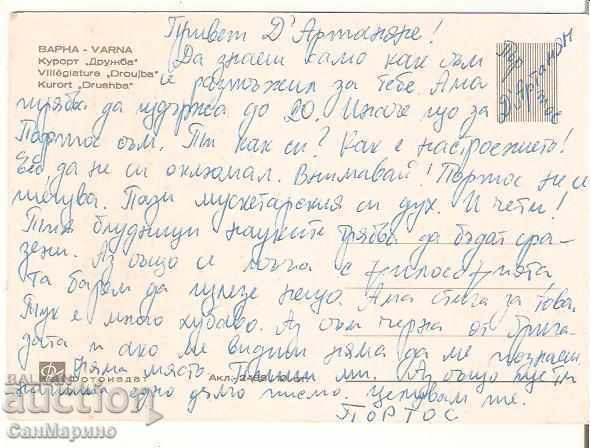 Привет Д'Артаняне!
ВАРНА - VARNA
Курорт „Дружба"
Villégiature „Droujba"
Kurort „Drushba"
Да знаеш само как съм
се размъжил за тебе. Ама
трябва да издържа до 20. Иначе що за
Портос съм. Ти как си? Как е настроението!
да не си оклюмал. Внимавай! Портос не се
шегува. Пази мускетарския си дух. И чети!
Тия блудници науките трябва да бъдат сра-
зени. Аз също се мъча с философията
та барем да излезе нещо. Ама стига за това.
Тук е много хубаво. Аз съм черна от брига-
дата и ако ме видиш няма да ме познаеш
Няма място. Пиши ми. Аз също ще ти
напиша едно дълго писмо. Целувам те.
ПОРТОС
Д'Артанян
Портос
фотоиздат
auction
СанМарино